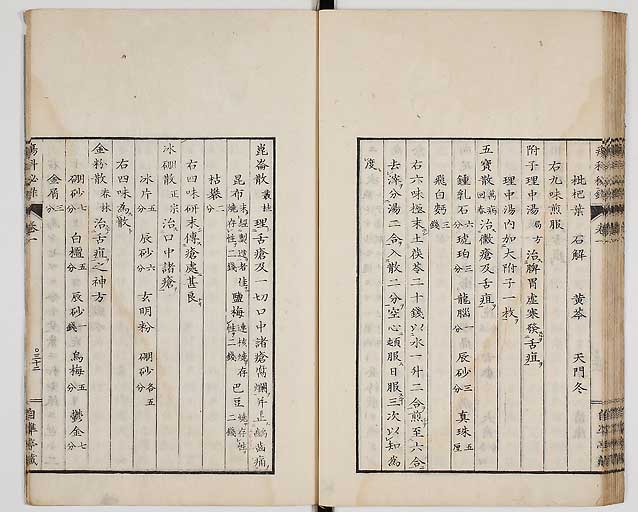 枇杷葉 石斛 黃芩 天門冬
右九味煎服
附子理中湯 局方 治脾胃虛寒發舌疽
理中湯內加大附子一枚
五寶散 萬病回春 治黴瘡及舌疽
鍾乳石 六分 琥珀 三分 龍腦 一分 辰砂 三分 真珠 五厘
飛白麪 三錢
右六味極末土茯苓二十錢以水一升二合煎至六合
去滓分湯二合入散二分空心頓服日服三次以知為
度
崑崙散 叢桂 理舌瘡及一切口中諸瘡腐爛并止齲齒痛
昆布 燒存性二錢 鹽梅 連核燒存性二錢 巴豆 燒存性二錢
枯礬 二分
右四味研末傅瘡處甚良
冰硼散 正宗 治口中諸瘡
冰片 五分 辰砂 六分 玄明粉 硼砂 各五
右四味為散
金粉散 春林 治舌疽之神方
硼砂 七分 白檀 五分 辰砂 一錢 烏梅 五分 鬱金 七分
金屑 三分
卷一